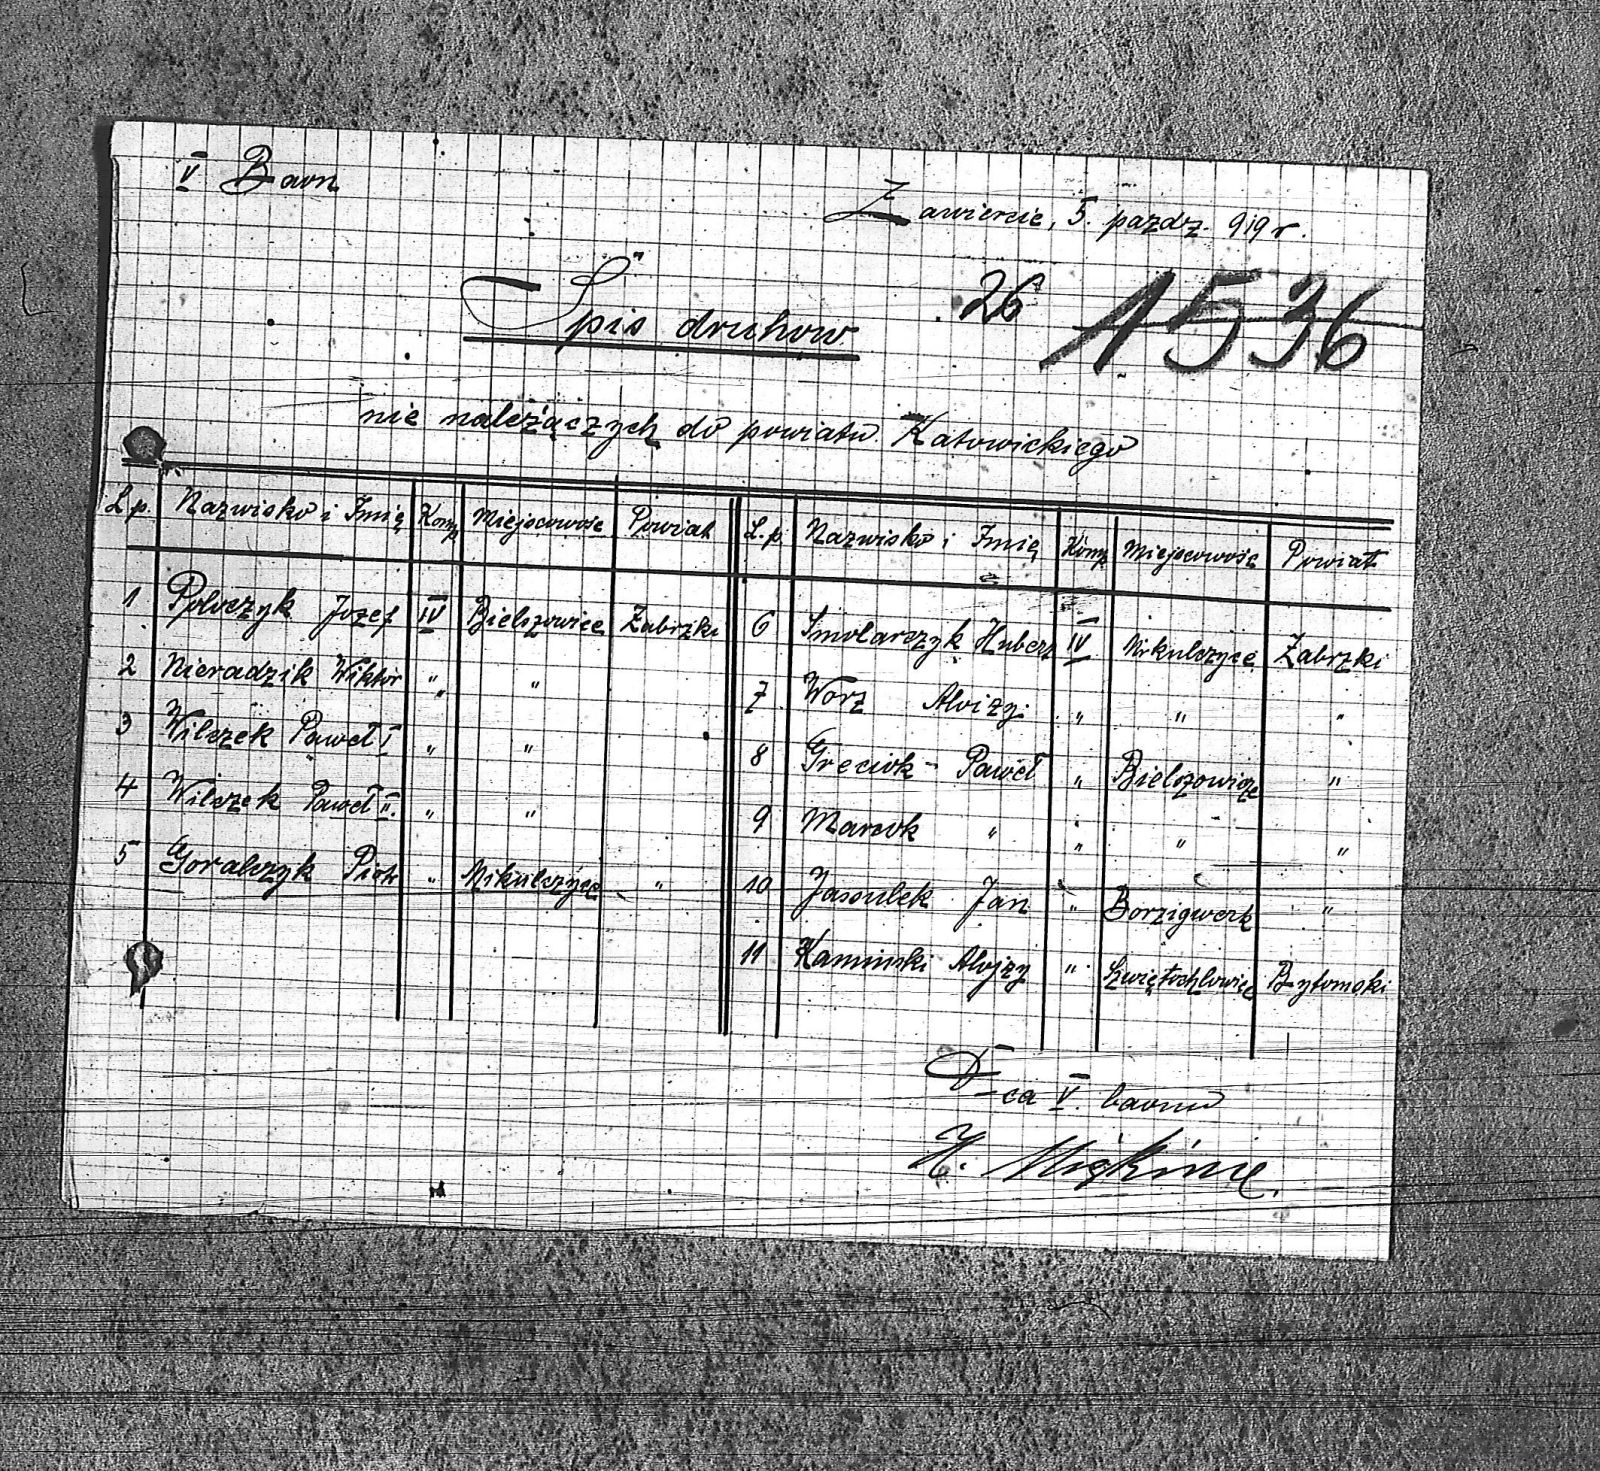 V Baon
Zawiercie, 5. pazdz. 919 r.
Spis druhow
26 1536
nie należących do powiatu Katowickiego
L.p. Nazwisko i Imię Komp Miejscowośc Powiat L.p. Nazwisko i Imię Komp Miejscowość Powiat
1 Poloczyk Jozef IV Bielszowice Zabrzki 6 Smolarczyk Hubert IV Mikulczyce Zabrzki
2 Nieradzik Wiktor " " 7 Worz Aloizy " " "
3 Wilczek Paweł I " " 8 Greciok - Paweł " Bielszowice "
4 Wilczek Paweł II. " " 9 Marcok " " " "
5 Goralczyk Piotr " Mikulczyce " 10 Jasoulek Jan " Borzigwerk "
11 Kaminski Alojzy " Szwiętochlowice Bytomski
D-ca V. baonu